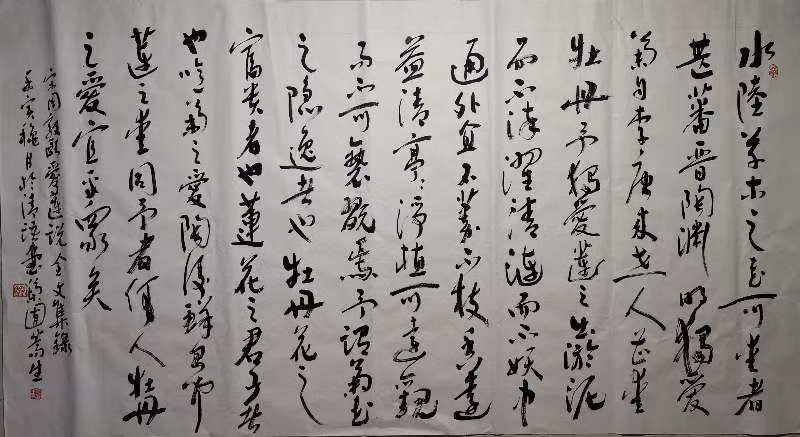 水陸草木之花可愛者
甚蕃晋陶渊明獨愛
菊自李唐来世人甚愛
牡丹予獨愛蓮之出淤泥
而不染濯清漣而不妖中
通外直不蔓不枝香遠
益清亭亭淨植可遠觀
而不可褻翫焉予謂菊花
之隐逸者也牡丹花之
富贵者也蓮花之君子者
也噫菊之愛陶後鮮有聞
蓮之愛同予者何人牡丹
之愛宜乎衆矣
宋周敦頤愛蓮说全文集錄
寅 月於清语